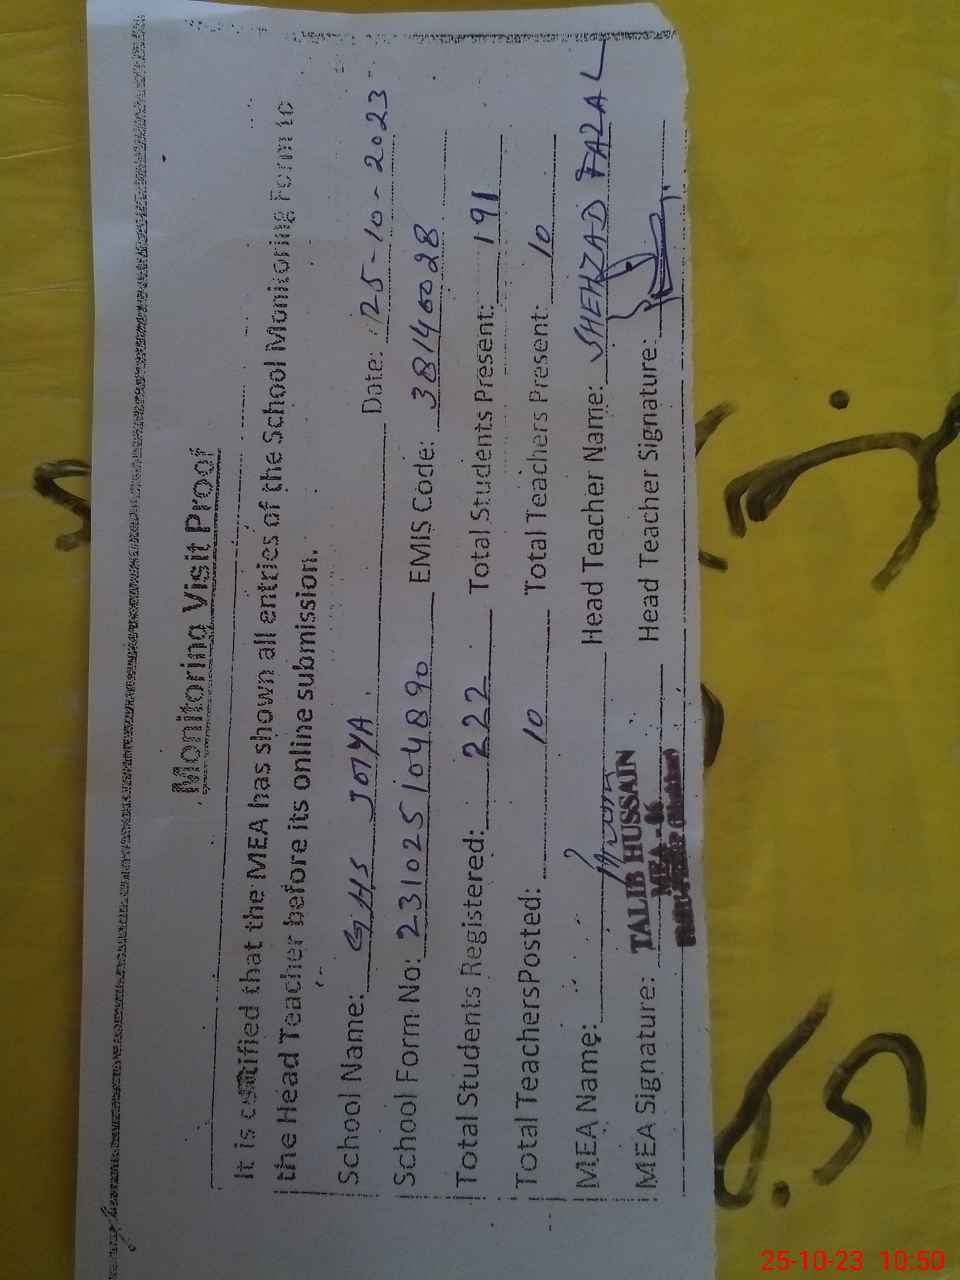 Monitoring Visit Proof
It is certified that the MEA has shown all entries of the School Monitoring Form to
the Head Teacher before its online submission.
School Name: GHS JOYA Date: 25-10-2023
School Form No: 231025104890 EMIS Code: 38140028
Total Students Registered: 222 Total Students Present: 191
Total Teachers Posted: 10 Total Teachers Present: 10
MEA Name: Head Teacher Name: SHEHZAD FAZAL
MEA Signature: TALIB HUSSAIN Head Teacher Signature:
MEA-06
25-10-23 10:50